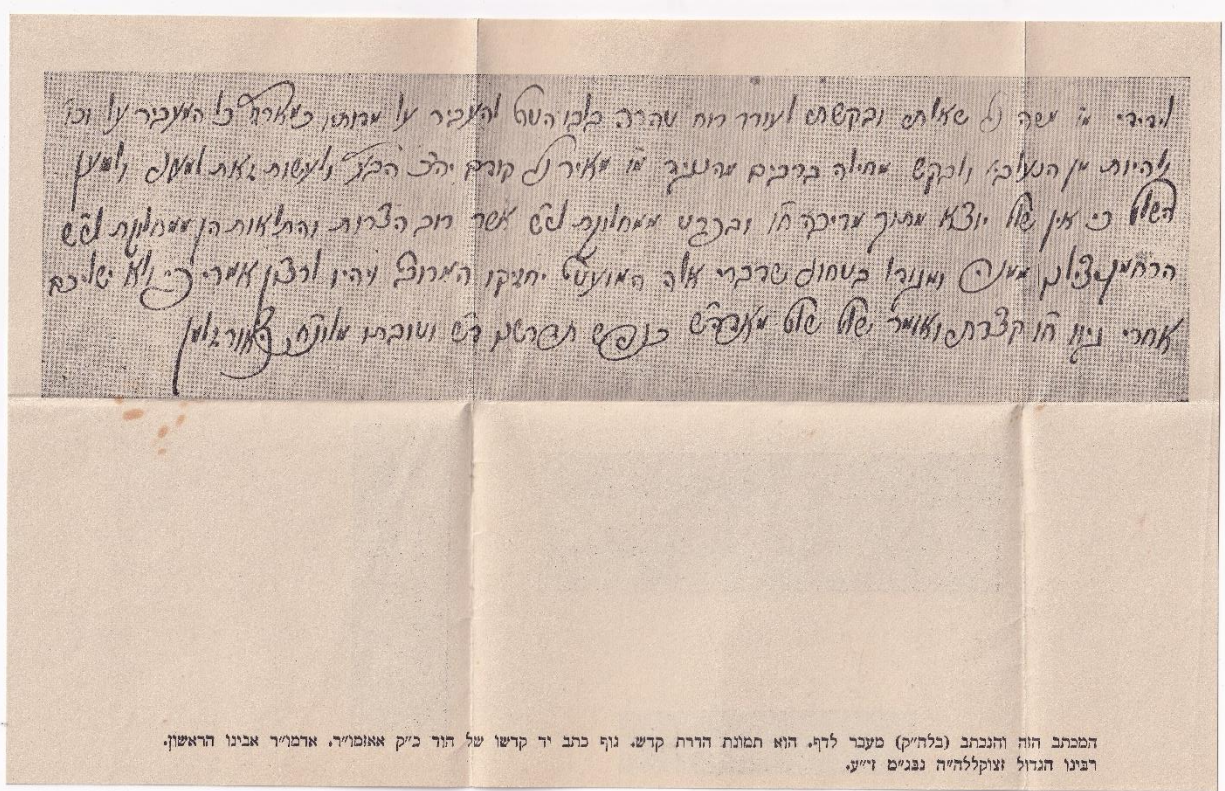 לידידי מו משה נל שאלתי ובקשתי לעורר רוח טהרה בלבו הטוב להעביר על מדותיו כמארז"ל כל המעביר על וכו'
ולהיות מן הנעלבי' ולבקש מחילה ברבים מהנגיד מו מאיר נל קודם יהכ ולעשות זאת למעני ולמען
השלום כי אין שלום יוצא מתוך מריבה ח"ו ובפרט ממחלוקת לפ"ש אשר רוב הצרות והתלאות הן ממחלוקת לפ"ש
הרחמן יצילנו ממנה ובטחוני שדברי אלה המועטים יחזיקו המרובה ויהיו לרצון אמרי כי לא ישליכם
אחרי גיוו ח"ו ואומר שלום שלום מאדה"ש כנפש תדרשם ו"ש וטובתו
המכתב הזה והנכתב (בלה״ק) מעבר לדף. הוא תמונת הדרת קדש. גוף כתב יד קדשו של הוד כ״ק אאזמו״ר. אדמו״ר אבינו הראשון.
רבינו הגדול זצוקללה״ה נבג״מ זי״ע.